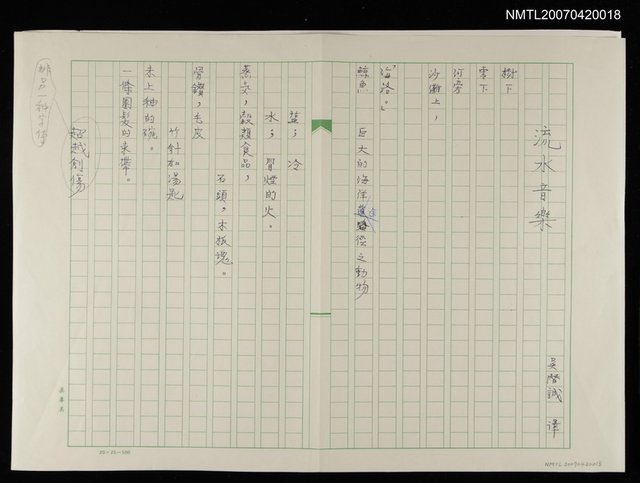 NMTL20070420018
流水音樂
吳啓誠 譯
樹下
零下
河旁
沙灘上，
「海洛。」
鯨魚 巨大的海洋 之動物
鹽，冷
水，冒煙的火。
蒸交，穀類食品，
石頭，木板塊。
骨鑽，毛皮
竹針和湯匙
未上釉的碗。
一條圈髮的束帶。
超越創傷
20×25=500
NMTL20070420018